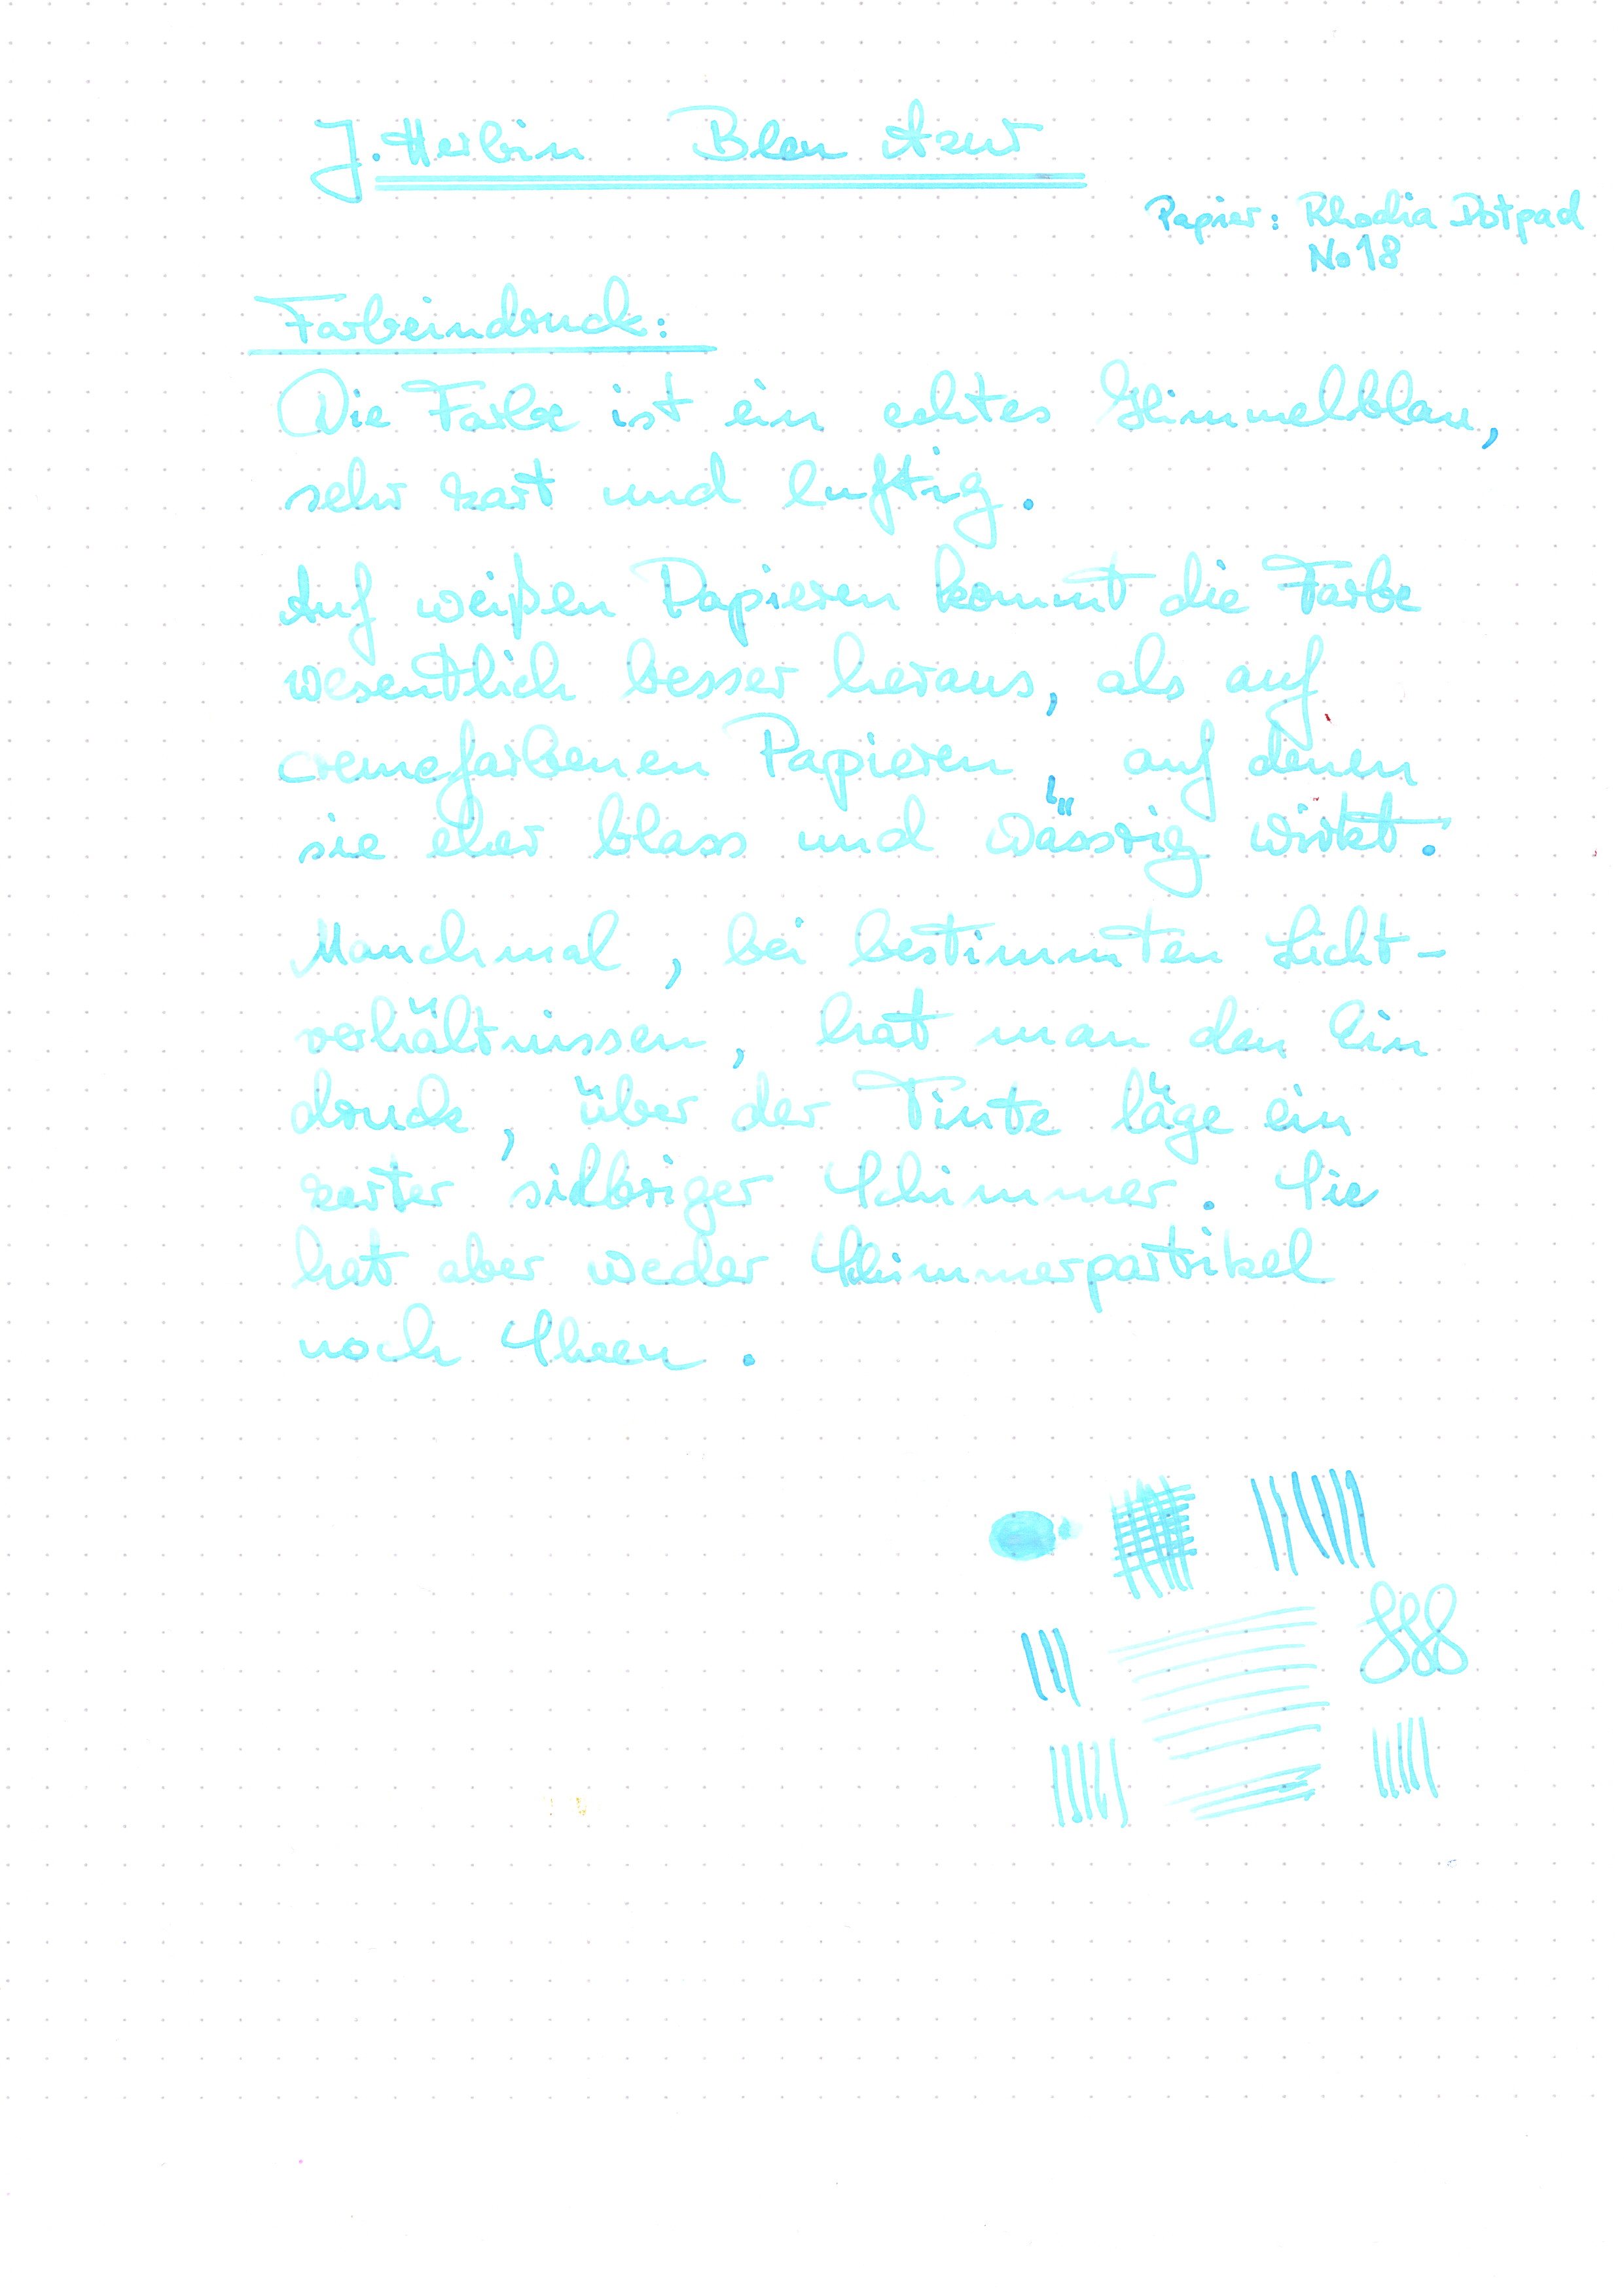 J. Herbin Bleu Azur
Papier: Rhodia Dotpad
No 18
Farbeindruck:
Die Farbe ist ein echtes Himmelblau,
sehr zart und luftig.
Auf weißen Papieren kommt die Farbe
wesentlich besser heraus, als auf
cremefarbenen Papieren, auf denen
sie eher blass und wässrig wirkt.
Manchmal, bei bestimmten Licht-
verhältnissen, hat man den Ein
druck, über der Tinte läge ein
zarter silbriger Schimmer. Sie
hat aber weder Schimmerpartikel
noch Sheen.